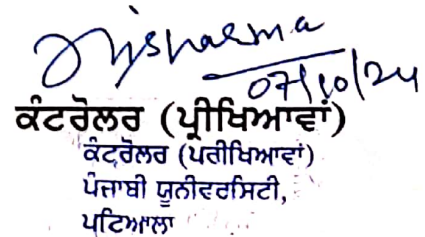 07/10/24
ਕੰਟਰੋਲਰ (ਪ੍ਰੀਖਿਆਵਾਂ)
ਕੰਟਰੋਲਰ (ਪਰੀਖਿਆਵਾਂ)
ਪੰਜਾਬੀ ਯੂਨੀਵਰਸਿਟੀ,
ਪਟਿਆਲਾ